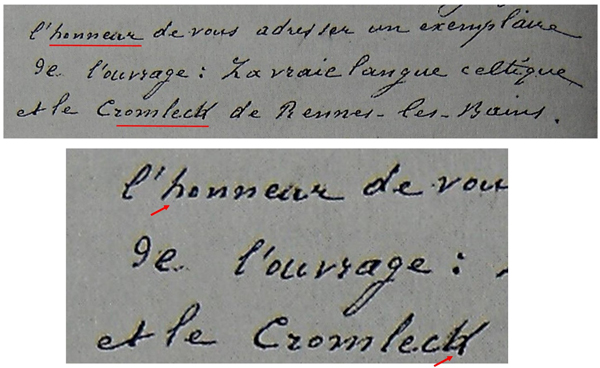 l'honneur de vous adresser un exemplaire
de l'ouvrage : La vraie langue celtique
et le Cromleck de Rennes-les-Bains.
l'honneur de vou
de l'ouvrage :
et le Cromleck